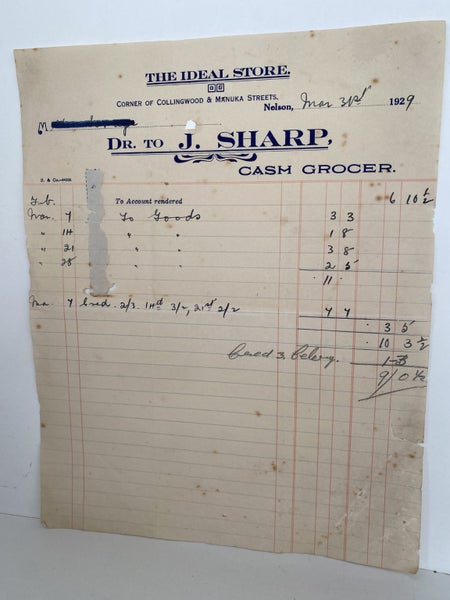 THE IDEAL STORE.
CORNER OF COLLINGWOOD & MANUKA STREETS.
Nelson, Mar 31st 1929
M
DR. TO J. SHARP,
CASH GROCER.
Feb. To Account rendered 6 10 1/2
Mar. 7 To Goods 3 3
" 14 " " 1 8
" 21 " " 3 8
" 28 " " 2 5
11 -
Mar 7 Cred. 2/3. 14th 3/2, 21st 2/2 7 7
3 5
10 3 1/2
Cred 3 Celery. 1-3
9/0 1/2